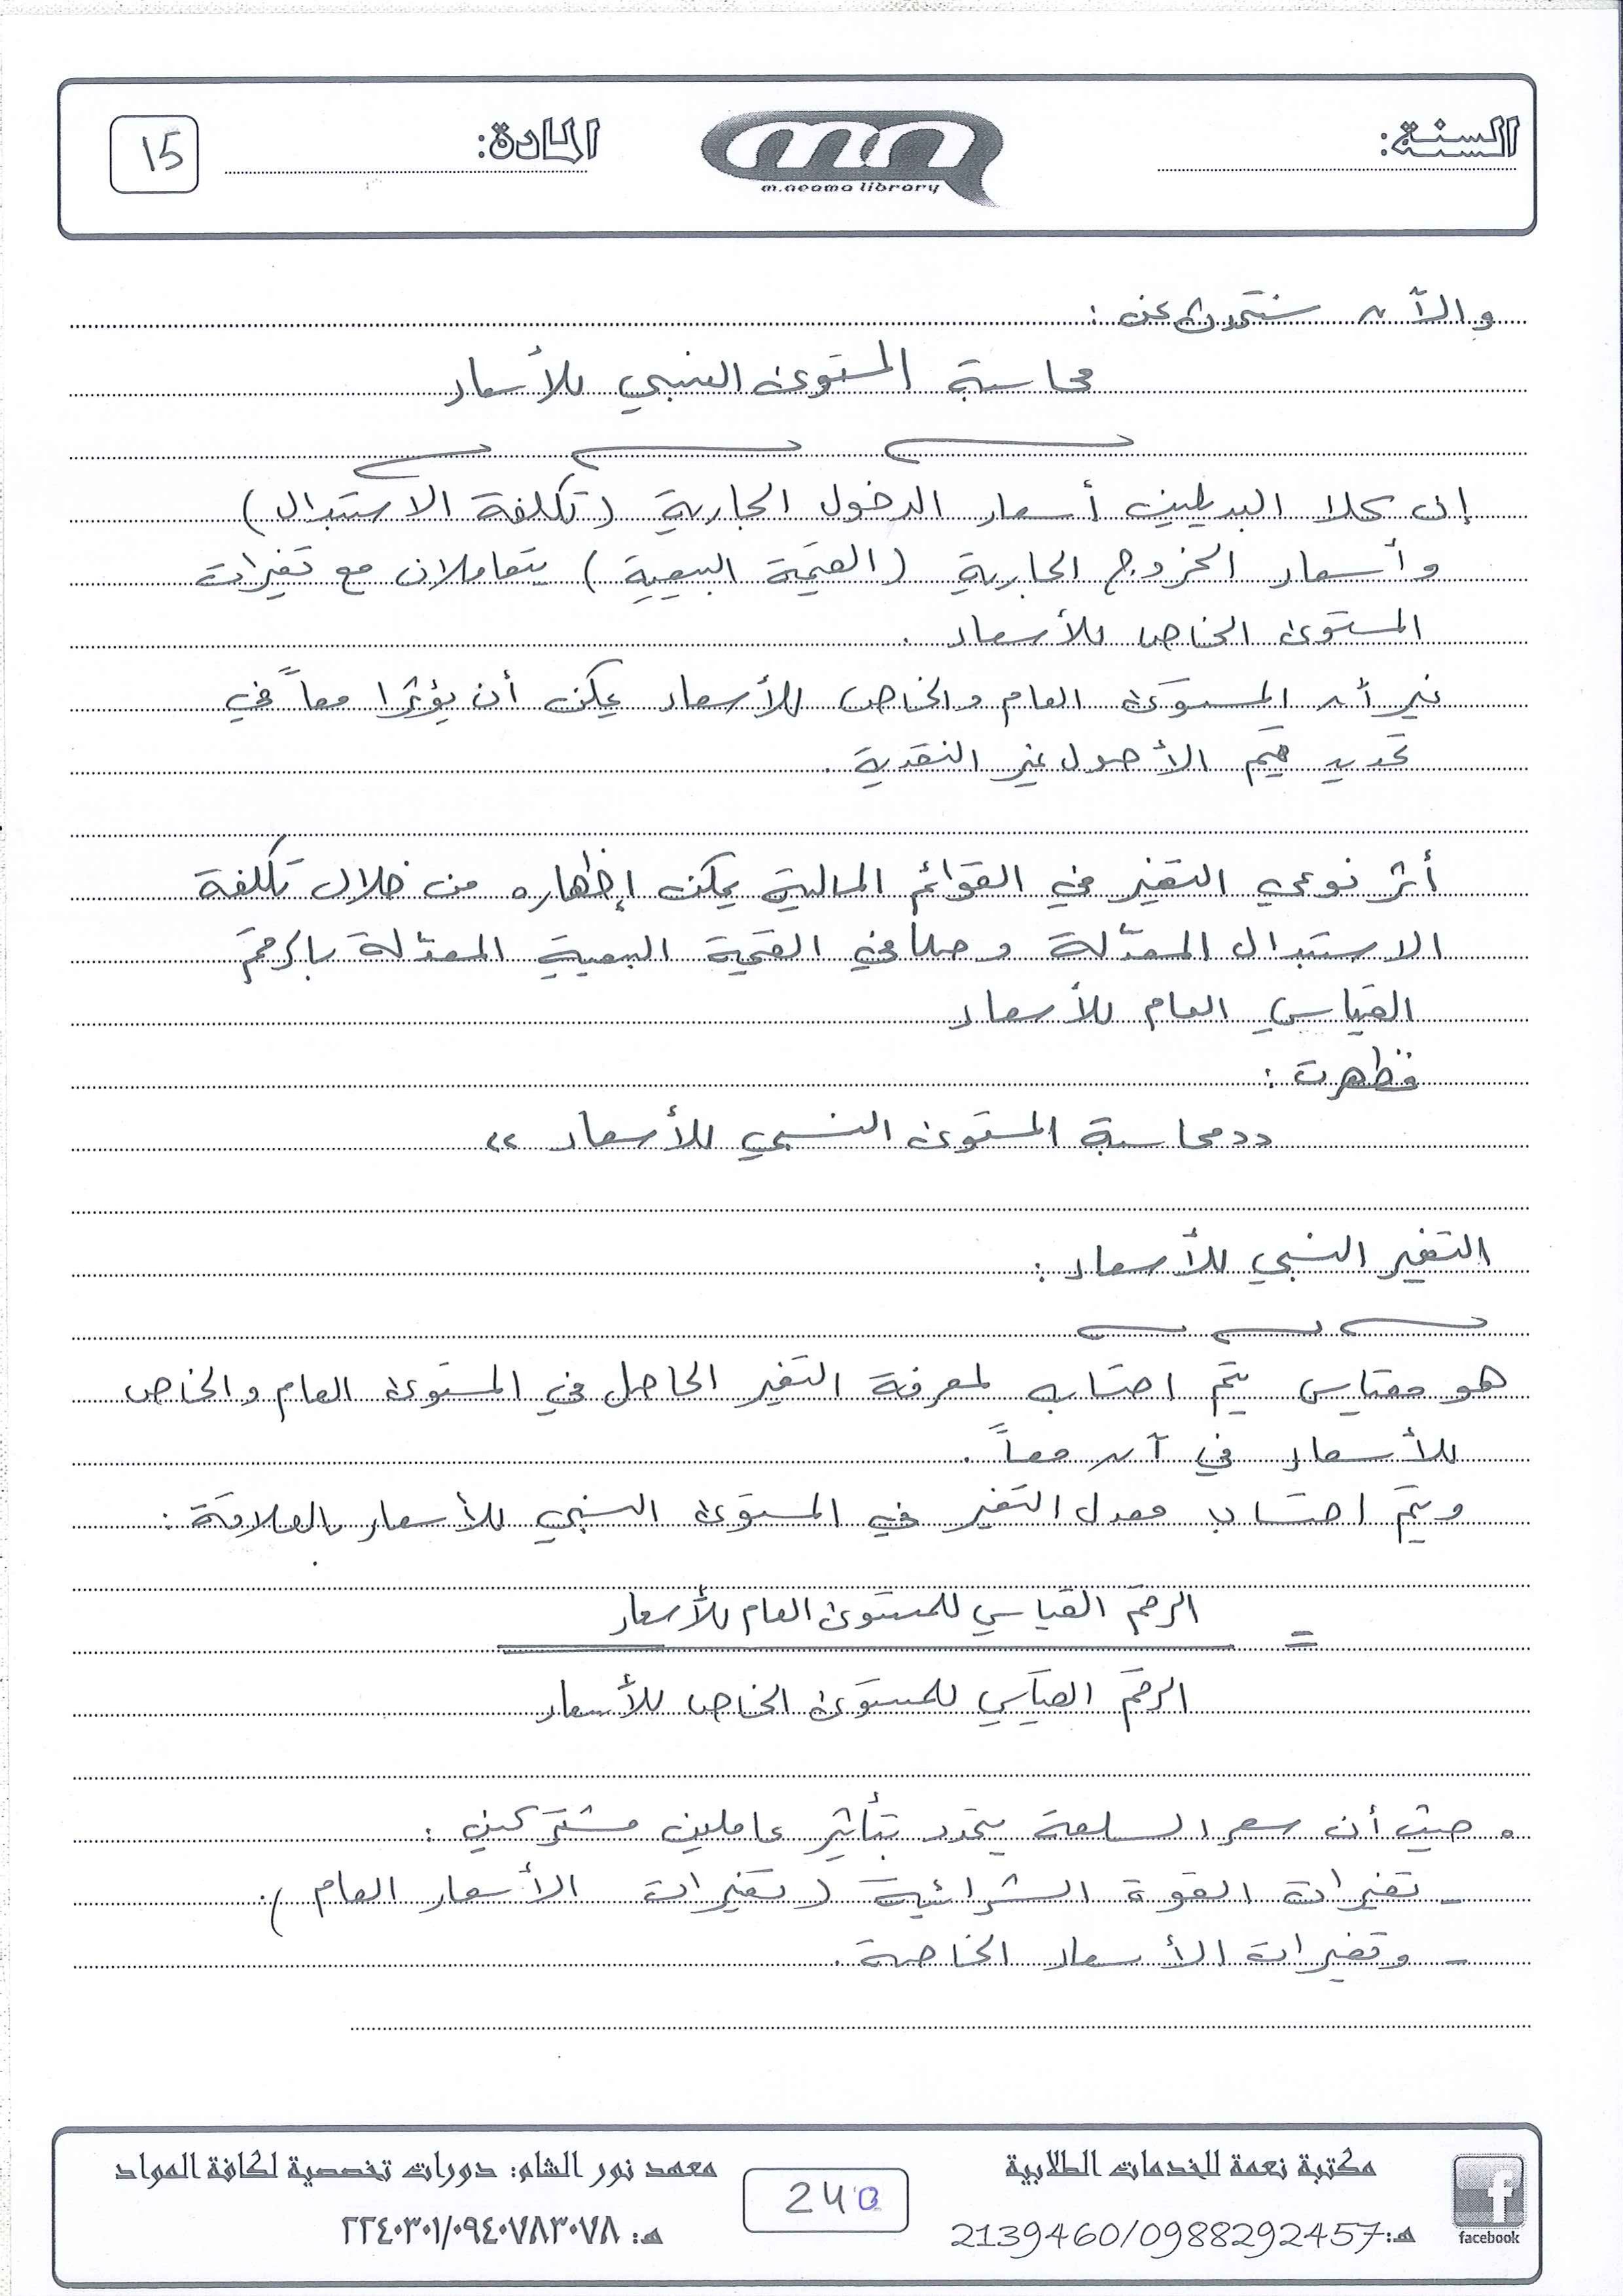 السنة:
m.neama library
المادة:
15
والآن سنتحدث عن :
محاسبة المستوى النسبي للأسعار
إن كلا البديلين أسعار الدخول الجارية (تكلفة الاستبدال)
وأسعار الخروج الجارية (القيمة البيعية) يتعاملان مع تغيرات
المستوى الخاص للأسعار .
غير أن المستوى العام والخاص للأسعار يمكن أن يؤثرا معاً في
تحديد قيم الأصول غير النقدية .
أثر نوعي التغير في القوائم المالية يمكن إظهاره من خلال تكلفة
الاستبدال المعدّلة وصافي القيمة البيعية المعدّلة بالرقم
القياسي العام للأسعار
فظهرت :
«محاسبة المستوى النسبي للأسعار»
التغير النسبي للأسعار :
هو مقياس يتم احتسابه لمعرفة التغير الحاصل في المستوى العام والخاص
للأسعار في آن معاً .
ويتم احتساب معدل التغير في المستوى النسبي للأسعار بالعلاقة :
= الرقم القياسي للمستوى العام للأسعار
الرقم القياسي للمستوى الخاص للأسعار
• حيث أن سعر السلعة يتحدد بتأثير عاملين مشتركين :
- تغيرات القوة الشرائية (تغيرات الأسعار العام).
- وتغيرات الأسعار الخاصة .
مكتبة نعمة للخدمات الطلابية
هـ:2139460/0988292457
facebook
240
معهد نور الشام: دورات تخصصية لكافة المواد
هـ: ٢٢٤٠٣٠١/٠٩٤٠٧٨٣٠٧٨